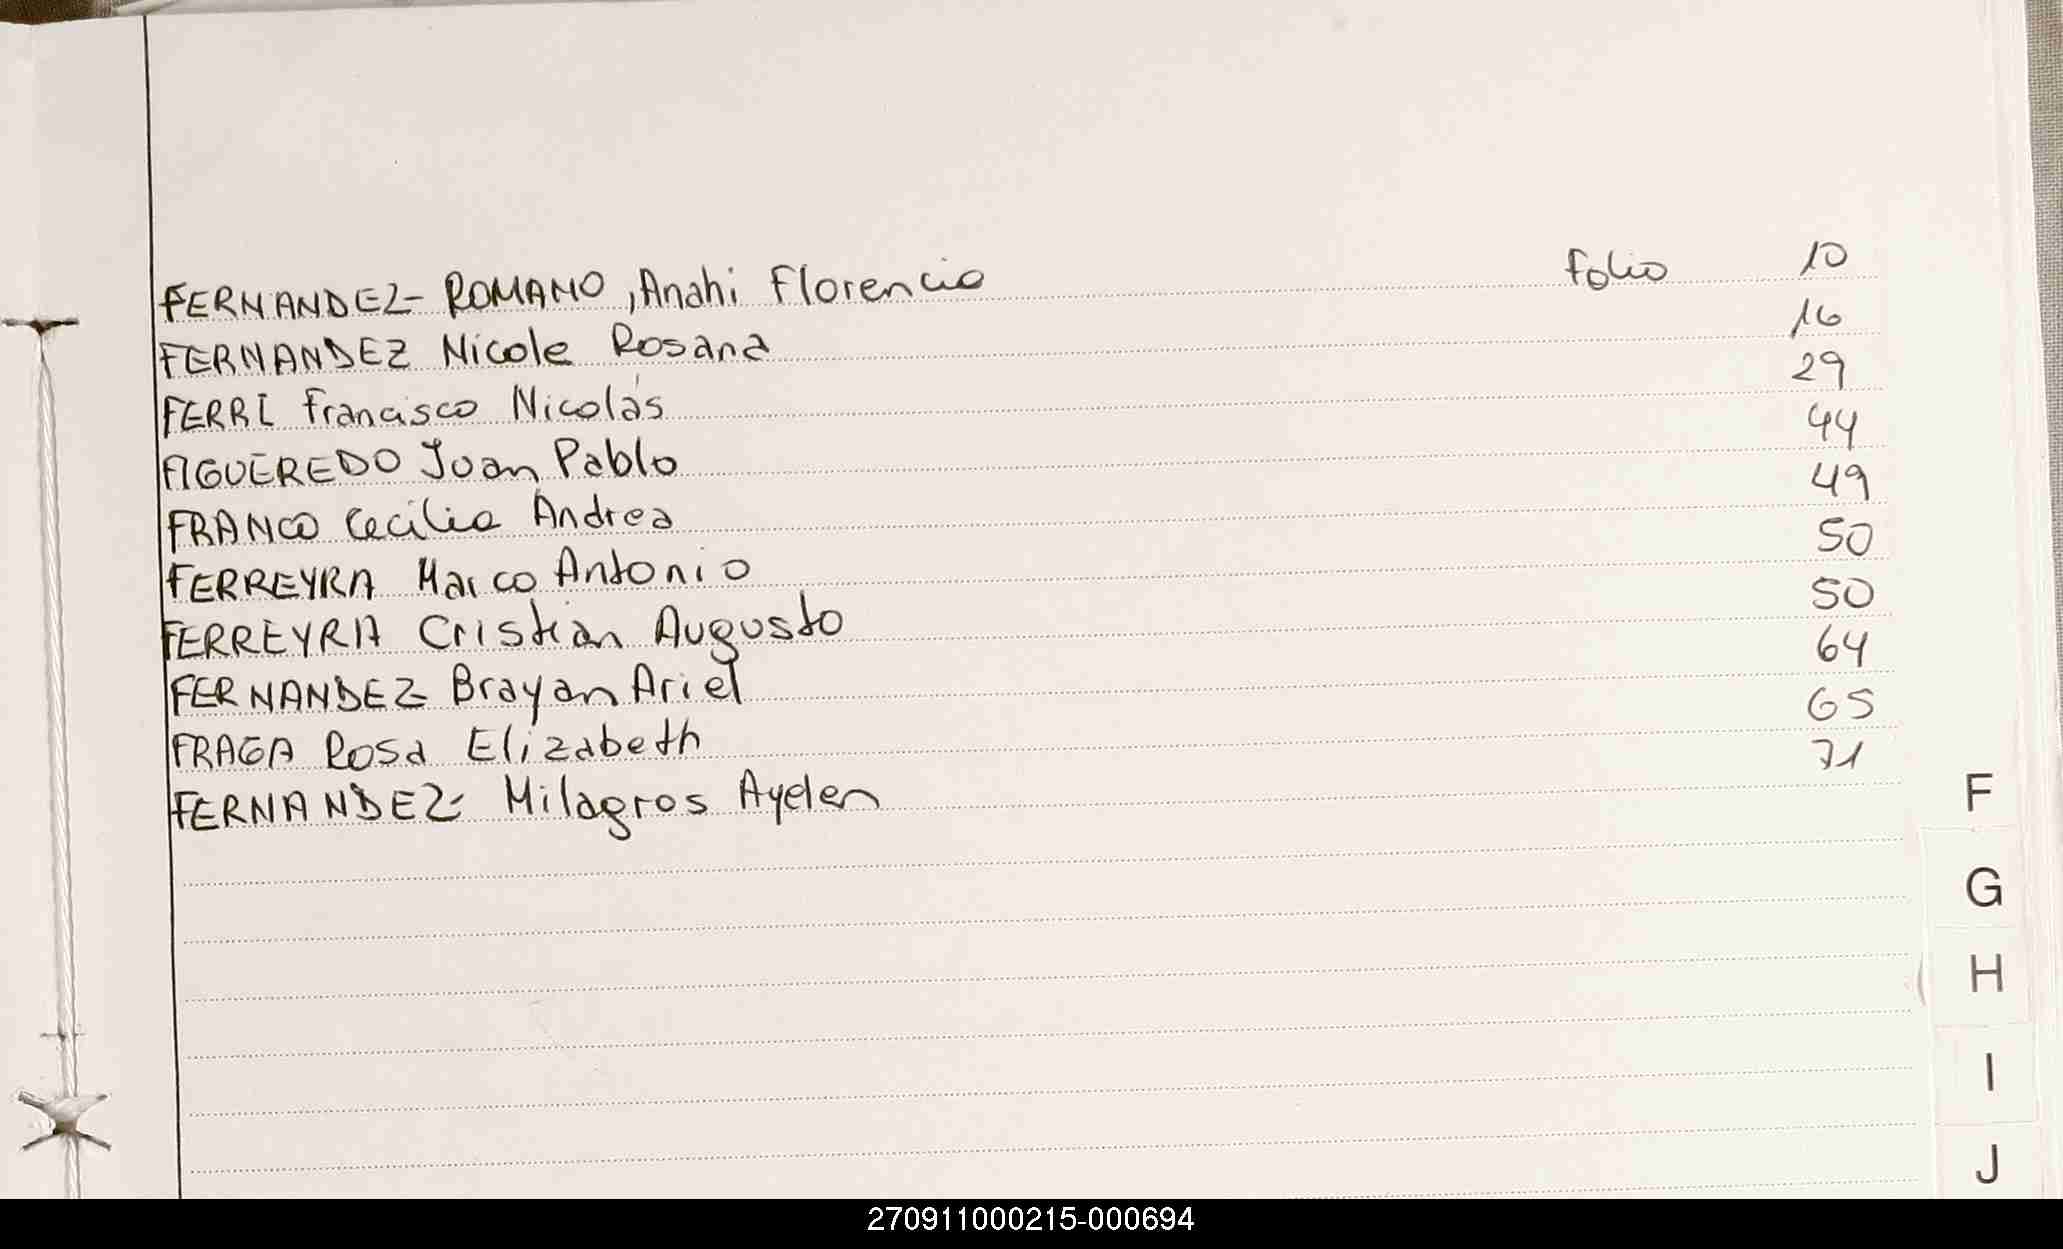 FERNANDEZ- ROMANO, Anahi Florencia Folio 10
FERNANDEZ Nicole Rosana 16
FERRI Francisco Nicolás 29
FIGUEREDO Juan Pablo 44
FRANCO Cecilia Andrea 49
FERREYRA Marco Antonio 50
FERREYRA Cristian Augusto 50
FERNANDEZ Brayan Ariel 64
FRAGA Rosa Elizabeth 65
FERNANDEZ- Milagros Ayelen 71
F
G
H
I
J
270911000215-000694